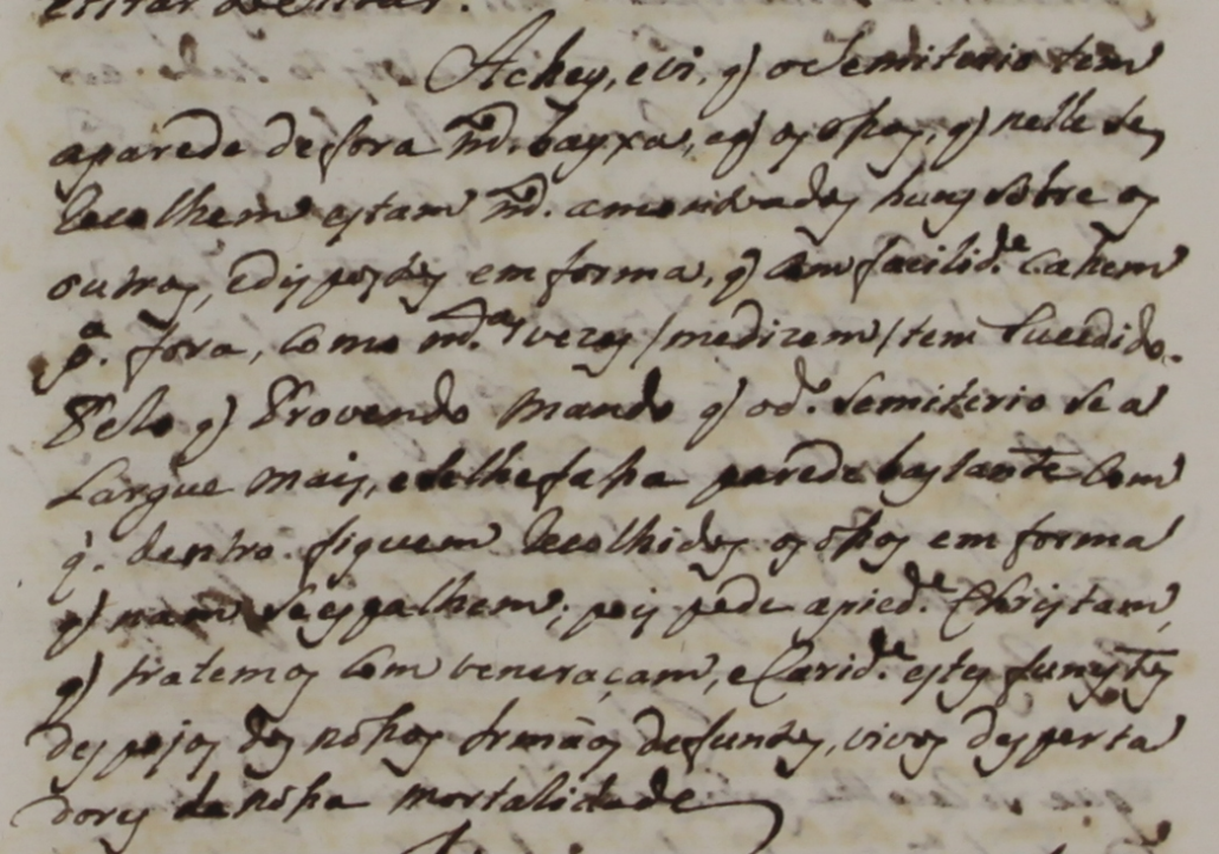 Achey, e vi, q̃ o Semiterio tem
a parede de fora m.to bayxa, e q̃ os ossos, q̃ nelle se
recolhem estam m.to amontuados huns sobre os
outros, e dispostos em forma, q̃ com facilid.e cahem
p.a fora, como m.tas vezes /me dizem/ tem sucedido.
Pelo q̃ Provendo Mando q̃ o d.o Semiterio se a
largue mais, e se lhe fassa parede bastante com
q̃. dentro fiquem recolhidos os ossos em forma
q̃ nam se espalhem; pois pede a pied.e Christam,
q̃ tratemos com veneraçam, e Carid.e estes funestos
despojos dos nossos Irmãos defuntos, vivos desperta
dores da nossa mortalidade